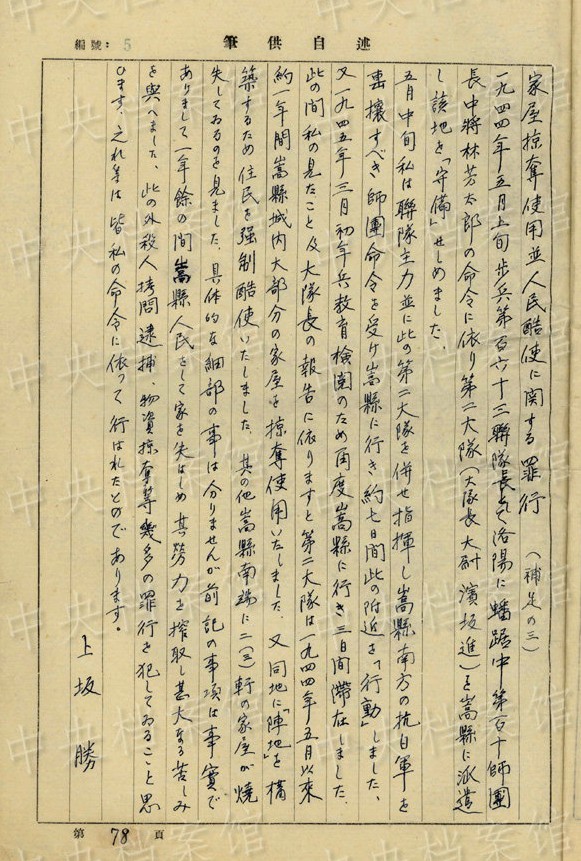 編號：5
述自供筆
家屋掠奪使用並人民酷使に関する罪行　（補足の三）
一九四四年五月上旬歩兵第百六十三聯隊長として洛陽に蟠踞中第百十師團
長中將林芳太郎の命令に依り第二大隊（大隊長大尉　濱坂進）を嵩縣に派遣
し該地を「守備」せしめました、
五月中旬私は聯隊主力並に此の第二大隊を併せ指揮し嵩縣南方の抗日軍を
撃攘すべき師團命令を受け嵩縣に行き約七日間此の附近を「行動」しました、
又一九四五年三月初年兵教育検閲のため再度嵩縣に行き三日間滞在しました、
此の間私の見たこと及大隊長の報告に依りますと第二大隊は一九四四年五月以来
約一年間嵩縣城内大部分の家屋を掠奪使用いたしました、又同地に「陣地」を構
築するため住民を强制酷使いたしました、其の他嵩縣南端に二（三）軒の家屋が焼
失してゐるのを見ました、具体的な細部の事は分りませんが前記の事項は事實で
ありまして一年餘の間嵩縣人民をして家を失はしめ其労力を搾取し甚大なる苦しみ
を與へました、此の外殺人拷問逮捕、物資掠奪等幾多の罪行を犯してゐること思
ひます、之れ等は皆私の命令に依って行はれたものであります。
上坂　勝
第78頁
中央档案馆